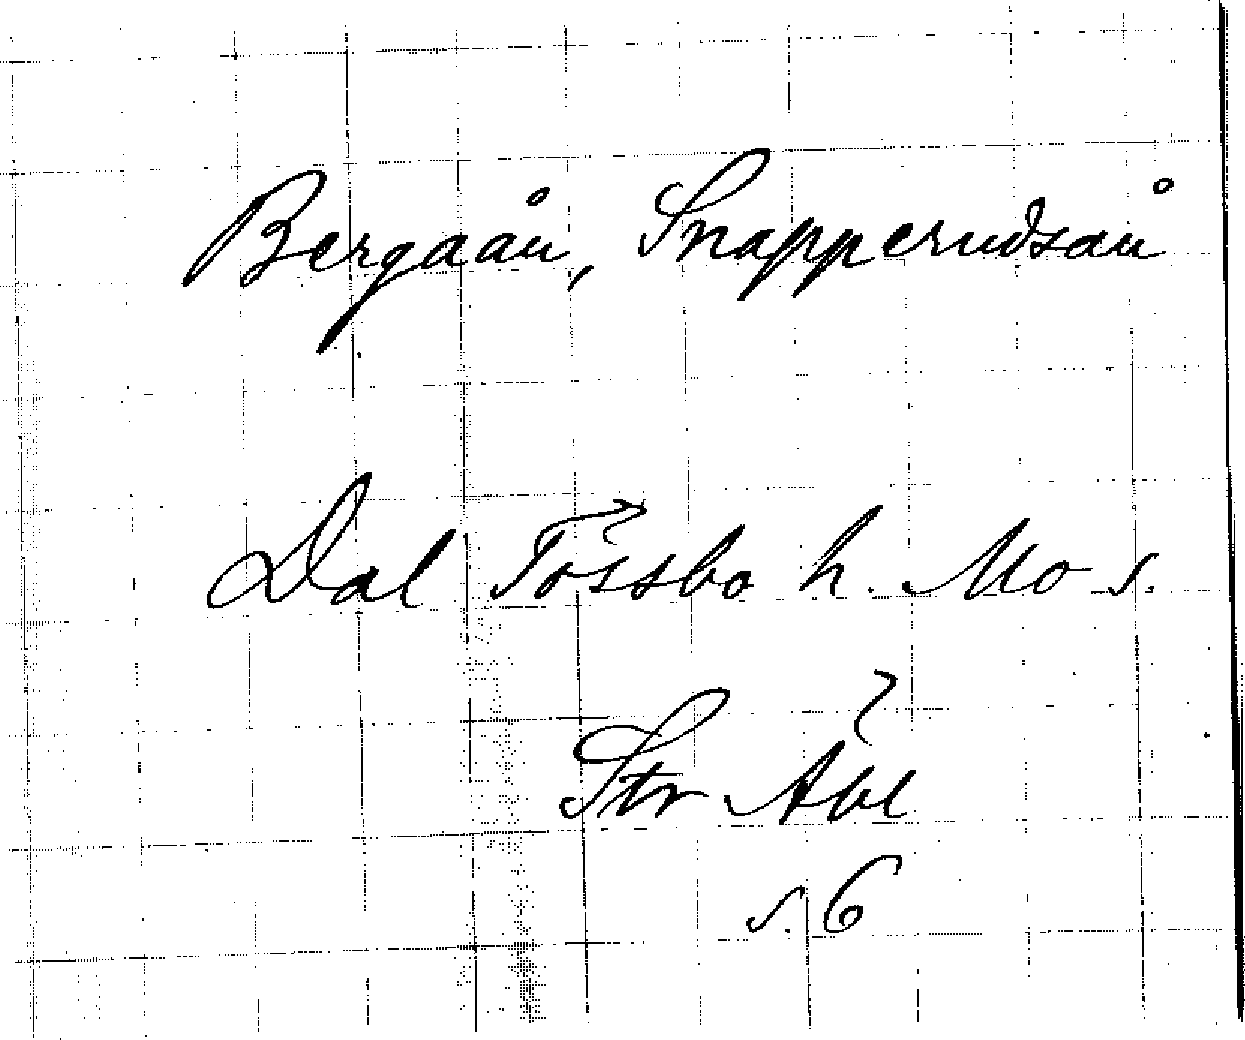 Bergaån, Snapperudsån
Dal Tössbo h. Mo s.
Str Äbl
s. 6